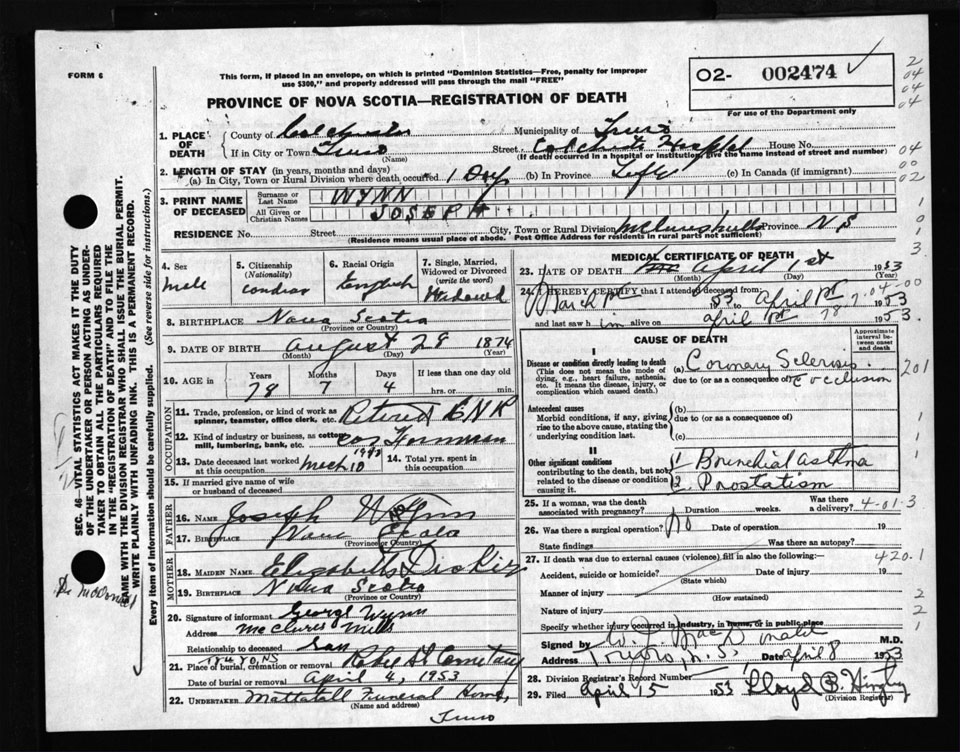 FORM 6
This form, if placed in an envelope, on which is printed "Dominion Statistics—Free, penalty for improper
use $300," and properly addressed will pass through the mail "FREE"
O2- 002474
For use of the Department only
PROVINCE OF NOVA SCOTIA—REGISTRATION OF DEATH
1. PLACE OF DEATH County of Colchester Municipality of Truro
If in City or Town Truro (Name) Street Colchester Hospital House No.
(If death occurred in a hospital or institution, give the name instead of street and number)
2. LENGTH OF STAY (in years, months and days)
(a) In City, Town or Rural Division where death occurred 1 Day (b) In Province Life (c) In Canada (if immigrant)
3. PRINT NAME OF DECEASED Surname or Last Name WYNN
All Given or Christian Names JOSEPH
RESIDENCE No. Street City, Town or Rural Division Province N S
(Residence means usual place of abode. Post Office Address for residents in rural parts not sufficient)
4. Sex Male
5. Citizenship (Nationality)
6. Racial Origin English
7. Single, Married, Widowed or Divorced (write the word) Widowed
8. BIRTHPLACE Nova Scotia
(Province or Country)
9. DATE OF BIRTH August 28 1874
(Month) (Day) (Year)
10. AGE in Years 78 Months 7 Days 4 If less than one day hrs. or min.
OCCUPATION
11. Trade, profession, or kind of work as spinner, teamster, office clerk, etc. Retired C N R
12. Kind of industry or business, as cotton mill, lumbering, bank, etc. Car Foreman
13. Date deceased last worked at this occupation
14. Total yrs. spent in this occupation
15. If married give name of wife or husband of deceased
FATHER
16. NAME Joseph Wynn
17. BIRTHPLACE Nova Scotia
(Province or Country)
MOTHER
18. MAIDEN NAME Elizabeth Dickie
19. BIRTHPLACE Nova Scotia
(Province or Country)
20. Signature of informant George Wynn
Address McClures Mills
Relationship to deceased Son
21. Place of burial, cremation or removal Robie St Cemetary
Date of burial or removal April 4, 1953
22. UNDERTAKER Mattatall Funeral Home,
(Name and address)
Truro
MEDICAL CERTIFICATE OF DEATH
23. DATE OF DEATH April 1st 1953
(Month) (Day) (Year)
24. I HEREBY CERTIFY that I attended deceased from
March 1st 53 to April 1st 1953
and last saw him alive on April 1st 1953.
CAUSE OF DEATH
Approximate interval between onset and death
I
Disease or condition directly leading to death
(This does not mean the mode of dying, e.g., heart failure, asthenia, etc. It means the disease, injury, or complication which caused death.)
(a) Coronary Sclerosis
due to (or as a consequence of) c occlusion
Antecedent causes
Morbid conditions, if any, giving rise to the above cause, stating the underlying condition last.
(b)
due to (or as a consequence of)
(c)
II
Other significant conditions
contributing to the death, but not related to the disease or condition causing it.
1 Bronchial asthma
2. Prostatism
25. If a woman, was the death associated with pregnancy? Duration weeks. Was there a delivery?
26. Was there a surgical operation? No Date of operation 19
State findings Was there an autopsy?
27. If death was due to external causes (violence) fill in also the following:-
Accident, suicide or homicide? (State which) Date of injury 19
Manner of injury (How sustained)
Nature of injury
Specify whether injury occurred in industry, in home, or in public place
Signed by W. J. MacDonald M.D.
Address Truro, N.S. Date April 8 1953
28. Division Registrar's Record Number
29. Filed April 15 1953 Lloyd B.
(Division Registrar)
4-01-3
420.1
SEC. 46—VITAL STATISTICS ACT MAKES IT THE DUTY
OF THE UNDERTAKER OR PERSON ACTING AS UNDER-
TAKER TO OBTAIN ALL THE PARTICULARS REQUIRED
IN THE "REGISTRATION OF DEATH" AND TO FILE THE
SAME WITH THE DIVISION REGISTRAR WHO SHALL ISSUE THE BURIAL PERMIT.
WRITE PLAINLY WITH UNFADING INK. THIS IS A PERMANENT RECORD.
Every item of Information should be carefully supplied. (See reverse side for instructions.)